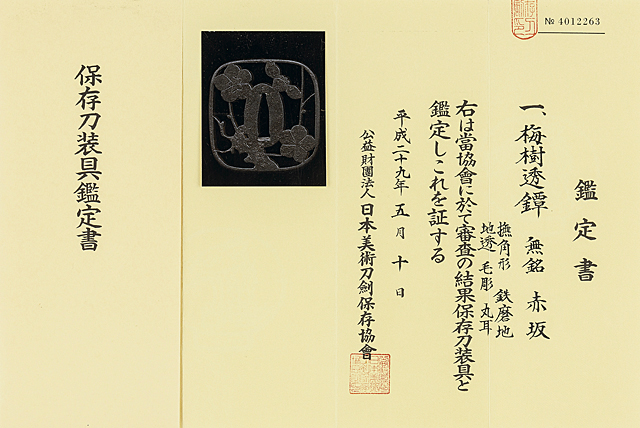 № 4012263
鑑定書
一、梅樹透鐔 無銘 赤坂
撫角形 鉄磨地
地透 毛彫 丸耳
右は當協會に於て審査の結果保存刀装具と
鑑定しこれを証する
平成二十九年 五月 十日
公益財團法人 日本美術刀劍保存協會
保存刀装具鑑定書